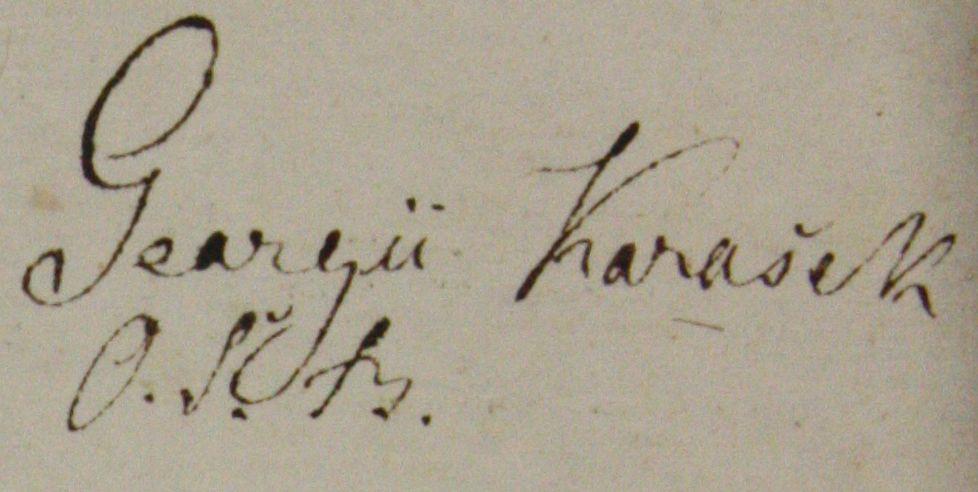 Georgii Karašek
O. S. B.